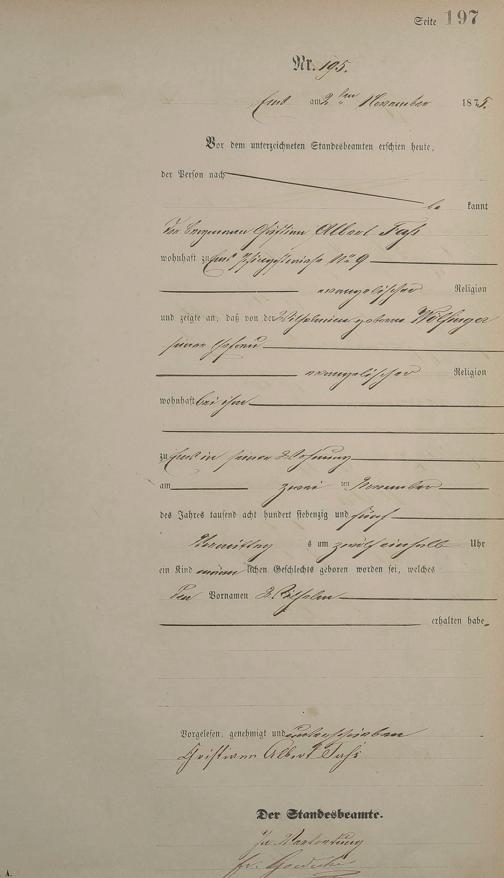 Seite 197
Nr. 195.
Ems am 2 ten November 1875.
Vor dem unterzeichneten Standesbeamten erschien heute,
der Person nach
be kannt
Der Bergmann Christian Albert
wohnhaft zu Ems No 9
evangelischer Religion
und zeigte an, daß von der Wilhelmine geborene
seiner Ehefrau
evangelischer Religion
wohnhaft bei ihm
zu Ems in seiner Wohnung
am zwei ten November
des Jahres tausend acht hundert siebenzig und fünf
Vormittag s um zwölf einhalb Uhr
ein Kind männ lichen Geschlechts geboren worden sei, welches
den Vornamen Wilhelm
erhalten habe.
Vorgelesen, genehmigt und unterschrieben
Christian Albert
Der Standesbeamte.
In Vertretung
A.